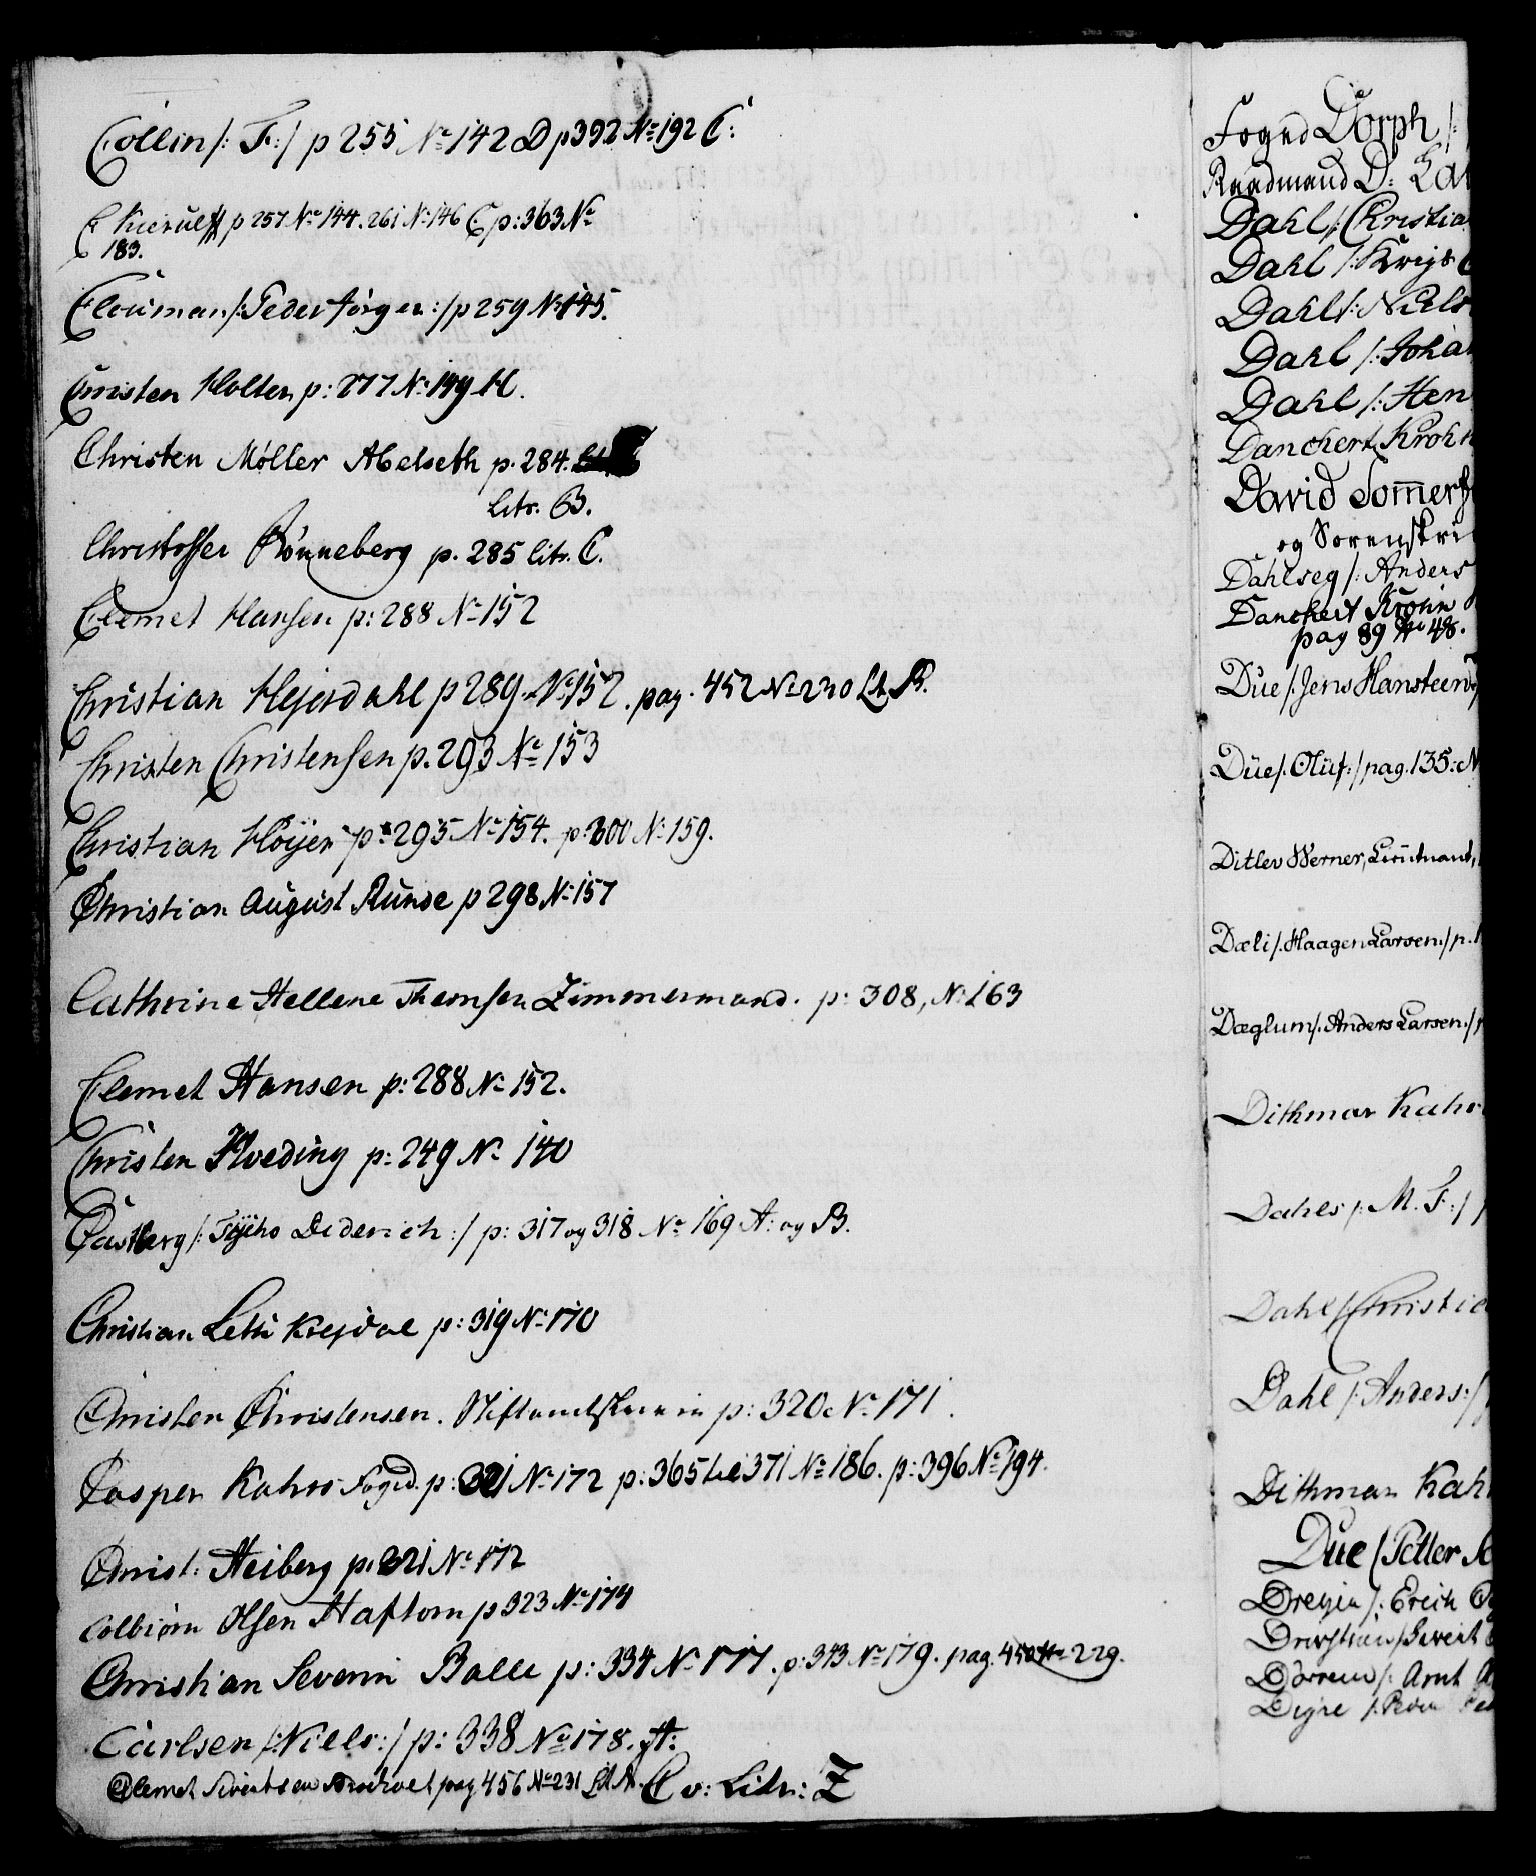 Collin /: F: / p 255 No 142 D p 392 No 192 C:
C Kierulff p 257 No 144. 261 No 146 C p: 363 No
183.
Clouman /: Peder Jörgen: / p 259 No 145.
Christen Holten p: 277 No 149 H.
Christen Møller Abelseth p. 284.
Litr. B.
Christoffer Rönneberg p. 285 litr. C.
Clemet Hansen p: 288 No 152
Christian Hejerdahl p 289 No 152. pag. 452 No 230 Lit B.
Christen Christensen p. 293 No 153
Christian Höÿer p: 295 No 154. p: 300 No 159.
Christian August Runde p 298 No 157
Cathrine Hellene Thomsen Zimmermand. p: 308, No 163
Clemet Hansen p: 288 No 152.
Christen Hoeding p: 249 No 140
Castberg /: Tÿcho Diderich: / p: 317 og 318 No 169 A: og B.
Christian p: 319 No 170
Christen Christensen. p: 320 No 171.
Casper Kahrs Foged. p: 321 No 172 p: 365 til 371 No 186. p: 396 No 194.
Christ: Heiberg p: 321 No 172
Colbiörn Olsen Haftorn p 323 No 174
Christian Severin Balle p: 334 No 177. p: 343 No 179. pag. 450 No 229.
Carlsen /: Niels: / p: 338 No 178. A:
Clemet Sivertsen pag 456 No 231 Lit A. C v: Litr: Z
Foged Dorph /:
Raadmand D:
Dahl /: Christia
Dahl /: Krigs
Dahl /: Niels
Dahl /: Johan
Dahl /: Hen
Danchert Krohn
David Sommerf
og Sorenskri
Dahlseg /: Anders
Danchert Krohn
pag 89 No 48.
Due /: Jens Hansteen
Düe /: Olüf: / pag. 135: N
Ditlev Werner, Lieutnant,
Dæli /: Haagen Larsen: / p.
Dæglum /: Anders Larsen: /
Dithmar Kahr
Dahls /: M. F: /
Dahl /: Christia
Dahl /: Anders: /
Dithmar Kah
Due /: Petter
Dreyer /: Erich
/: Sivert
/: Arnt
/: Peder